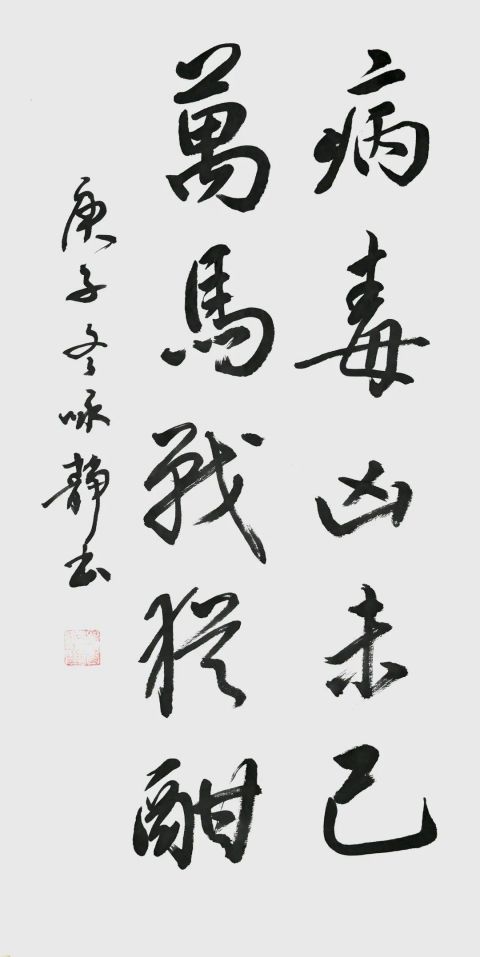 病毒凶未已
萬馬戰猶酣
庚子冬咏靜书